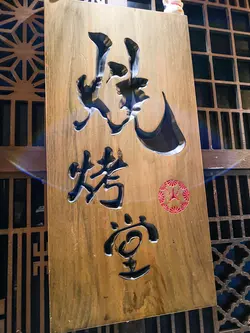 烧烤堂